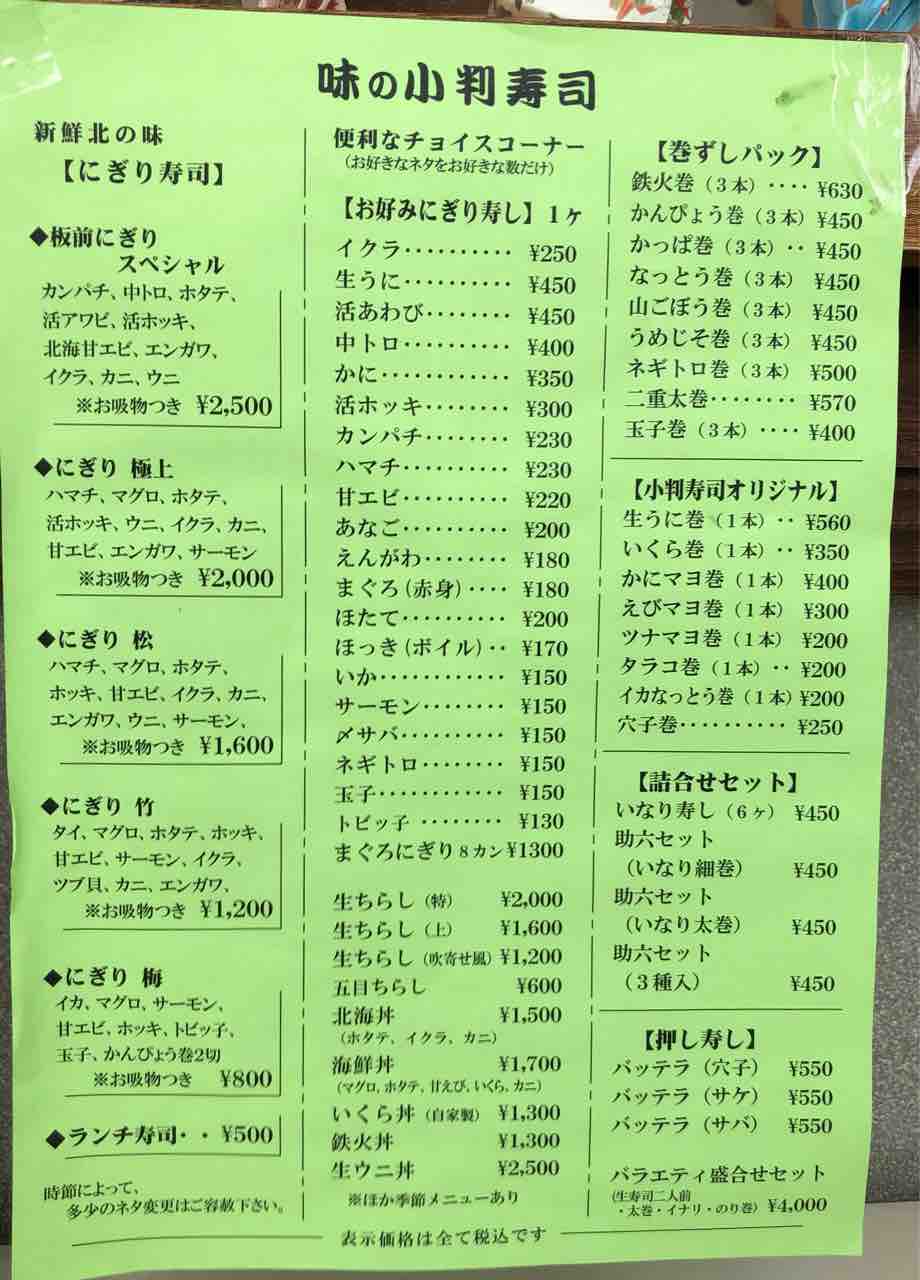 味の小判寿司
新鮮北の味
【にぎり寿司】
◆板前にぎり
スペシャル
カンパチ、中トロ、ホタテ、
活アワビ、活ホッキ、
北海甘エビ、エンガワ、
イクラ、カニ、ウニ
※お吸物つき ¥2,500
◆にぎり 極上
ハマチ、マグロ、ホタテ、
活ホッキ、ウニ、イクラ、カニ、
甘エビ、エンガワ、サーモン
※お吸物つき ¥2,000
◆にぎり 松
ハマチ、マグロ、ホタテ、
ホッキ、甘エビ、イクラ、カニ、
エンガワ、ウニ、サーモン、
※お吸物つき ¥1,600
◆にぎり 竹
タイ、マグロ、ホタテ、ホッキ、
甘エビ、サーモン、イクラ、
ツブ貝、カニ、エンガワ、
※お吸物つき ¥1,200
◆にぎり 梅
イカ、マグロ、サーモン、
甘エビ、ホッキ、トビッ子、
玉子、かんぴょう巻2切
※お吸物つき ¥800
◆ランチ寿司・・¥500
時節によって、
多少のネタ変更はご容赦下さい。
便利なチョイスコーナー
(お好きなネタをお好きな数だけ)
【お好みにぎり寿し】1ヶ
イクラ・・・・・・・・・・ ¥250
生うに・・・・・・・・・・ ¥450
活あわび・・・・・・・・ ¥450
中トロ・・・・・・・・・・ ¥400
かに・・・・・・・・・・・・ ¥350
活ホッキ・・・・・・・・ ¥300
カンパチ・・・・・・・・ ¥230
ハマチ・・・・・・・・・・ ¥230
甘エビ・・・・・・・・・・ ¥220
あなご・・・・・・・・・・ ¥200
えんがわ・・・・・・・・ ¥180
まぐろ(赤身)・・・・ ¥180
ほたて・・・・・・・・・・ ¥200
ほっき(ボイル)・・ ¥170
いか・・・・・・・・・・・・ ¥150
サーモン・・・・・・・・ ¥150
〆サバ・・・・・・・・・・ ¥150
ネギトロ・・・・・・・・ ¥150
玉子・・・・・・・・・・・・ ¥150
トビッ子・・・・・・・・ ¥130
まぐろにぎり8カン¥1300
生ちらし(特) ¥2,000
生ちらし(上) ¥1,600
生ちらし(吹寄せ風) ¥1,200
五目ちらし ¥600
北海丼 ¥1,500
(ホタテ、イクラ、カニ)
海鮮丼 ¥1,700
(マグロ、ホタテ、甘えび、いくら、カニ)
いくら丼(自家製) ¥1,300
鉄火丼 ¥1,300
生ウニ丼 ¥2,500
※ほか季節メニューあり
【巻ずしパック】
鉄火巻(3本)・・・・ ¥630
かんぴょう巻(3本) ¥450
かっぱ巻(3本)・・ ¥450
なっとう巻(3本) ¥450
山ごぼう巻(3本) ¥450
うめじそ巻(3本) ¥450
ネギトロ巻(3本) ¥500
二重太巻・・・・・・・・ ¥570
玉子巻(3本)・・・・ ¥400
【小判寿司オリジナル】
生うに巻(1本)・・ ¥560
いくら巻(1本)・・ ¥350
かにマヨ巻(1本) ¥400
えびマヨ巻(1本) ¥300
ツナマヨ巻(1本) ¥200
タラコ巻(1本)・・ ¥200
イカなっとう巻(1本)¥200
穴子巻・・・・・・・・・・ ¥250
【詰合せセット】
いなり寿し(6ヶ) ¥450
助六セット
(いなり細巻) ¥450
助六セット
(いなり太巻) ¥450
助六セット
(3種入) ¥450
【押し寿し】
バッテラ(穴子) ¥550
バッテラ(サケ) ¥550
バッテラ(サバ) ¥550
バラエティ盛合せセット
(生寿司二人前
・太巻・イナリ・のり巻) ¥4,000
表示価格は全て税込です